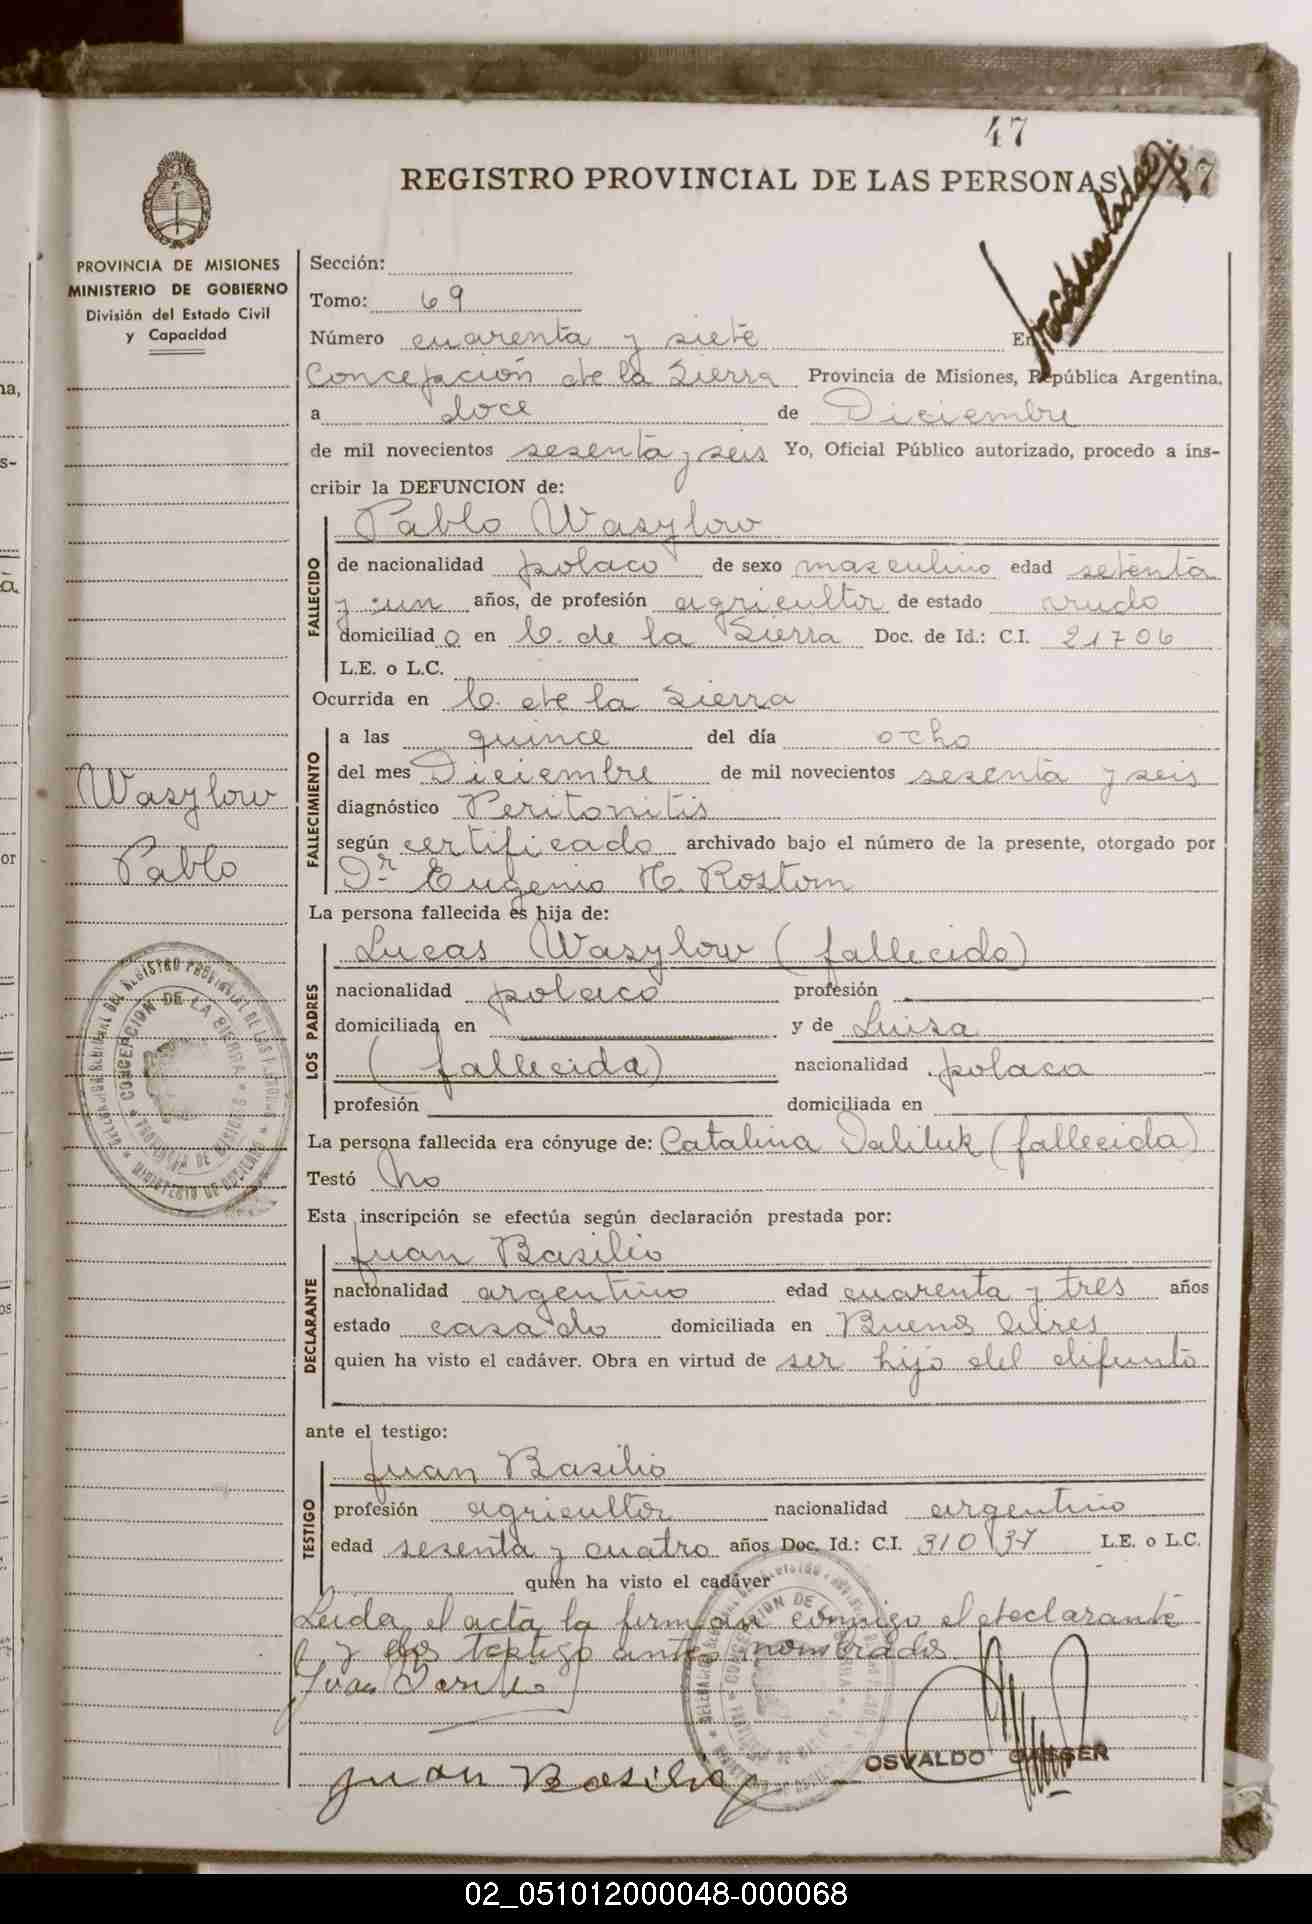 47
REGISTRO PROVINCIAL DE LAS PERSONAS
7
PROVINCIA DE MISIONES
MINISTERIO DE GOBIERNO
División del Estado Civil
y Capacidad
Sección:
Tomo: 69
Número cuarenta y siete En
Concepción de la Sierra Provincia de Misiones, República Argentina,
a doce de Diciembre
de mil novecientos sesenta y seis Yo, Oficial Público autorizado, procedo a ins-
cribir la DEFUNCION de:
FALLECIDO
Pablo Wasylow
de nacionalidad polaco de sexo masculino edad setenta
y un años, de profesión agricultor de estado viudo
domiciliado en C. de la Sierra Doc. de Id.: C.I. 21706
L.E. o L.C.
Ocurrida en C. de la Sierra
FALLECIMIENTO
a las quince del día ocho
del mes Diciembre de mil novecientos sesenta y seis
diagnóstico Peritonitis
según certificado archivado bajo el número de la presente, otorgado por
Dr Eugenio H. Rostom
Wasylow
Pablo
La persona fallecida es hija de:
LOS PADRES
Lucas Wasylow (fallecido)
nacionalidad polaco profesión
domiciliada en y de Luisa
(fallecida) nacionalidad polaca
profesión domiciliada en
La persona fallecida era cónyuge de: Catalina Daliluk (fallecida)
Testó No
Esta inscripción se efectúa según declaración prestada por:
DECLARANTE
Juan Basilio
nacionalidad argentino edad cuarenta y tres años
estado casado domiciliada en Buenos Aires
quien ha visto el cadáver. Obra en virtud de ser hijo del difunto
ante el testigo:
TESTIGO
Juan Basilio
profesión agricultor nacionalidad argentino
edad sesenta y cuatro años Doc. Id.: C.I. 310 L.E. o L.C.
quien ha visto el cadáver
Leida el acta la firman conmigo el declarante
y testigo antes nombrados.
Juan
Juan Basilio
OSVALDO
CONCEPCION DE LA SIERRA
PROVINCIA DE MISIONES
MINISTERIO DE GOBIERNO
02_051012000048-000068